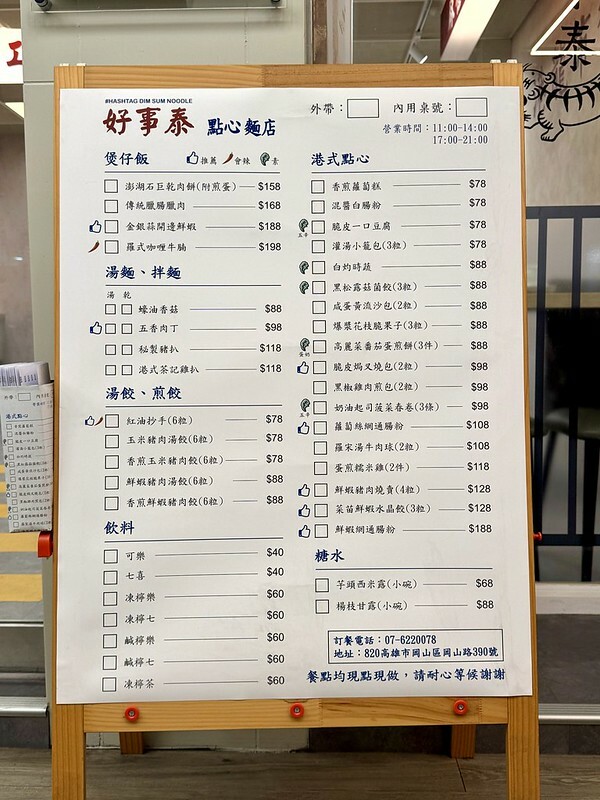 #HASHTAG DIM SUM NOODLE
好事泰 點心麵店
外帶： 內用桌號：
營業時間：11:00-14:00
17:00-21:00
煲仔飯 推薦 會辣 素
澎湖石巨乾肉餅(附煎蛋) $158
傳統臘腸臘肉 $168
金銀蒜開邊鮮蝦 $188
羅式咖喱牛腩 $198
湯麵、拌麵
湯 乾
蠔油香菇 $88
五香肉丁 $98
秘製豬扒 $118
港式茶記雞扒 $118
湯餃、煎餃
紅油抄手(6粒) $78
玉米豬肉湯餃(6粒) $78
香煎玉米豬肉餃(6粒) $78
鮮蝦豬肉湯餃(6粒) $88
香煎鮮蝦豬肉餃(6粒) $88
飲料
可樂 $40
七喜 $40
凍檸樂 $60
凍檸七 $60
鹹檸樂 $60
鹹檸七 $60
凍檸茶 $60
港式點心
香煎蘿蔔糕 $78
混醬白腸粉 $78
五辛 脆皮一口豆腐 $78
灌湯小籠包(3粒) $78
白灼時蔬 $88
黑松露菇菌餃(3粒) $88
咸蛋黃流沙包(2粒) $88
爆漿花枝脆果子(3粒) $88
蛋奶 高麗菜番茄蛋煎餅(3件) $88
脆皮焗叉燒包(2粒) $98
黑椒雞肉煎包(2粒) $98
五辛 奶油起司菠菜春卷(3條) $98
蘿蔔絲網通腸粉 $108
羅宋湯牛肉球(2粒) $108
蛋煎糯米雞(2件) $118
鮮蝦豬肉燒賣(4粒) $128
菜苗鮮蝦水晶餃(3粒) $128
鮮蝦網通腸粉 $188
糖水
芋頭西米露(小碗) $68
楊枝甘露(小碗) $88
訂餐電話：07-6220078
地址：820高雄市岡山區岡山路390號
餐點均現點現做，請耐心等候謝謝
泰